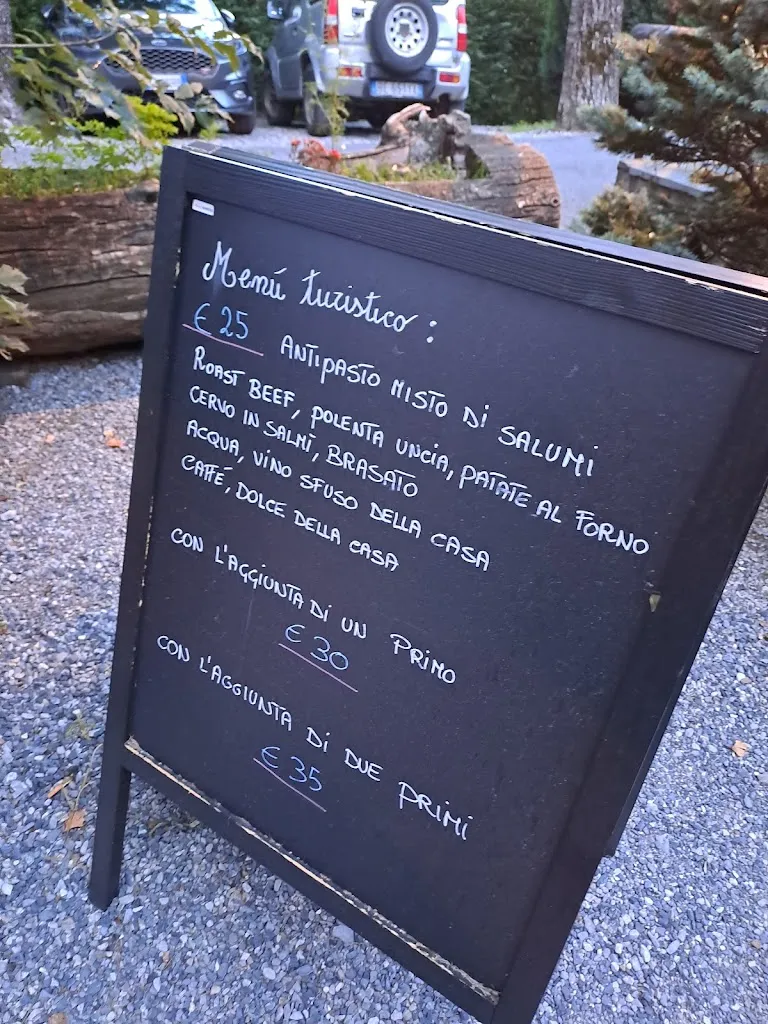 Menú turistico:
€ 25 ANTIPASTO MISTO DI SALUMI
ROAST BEEF, POLENTA UNCIA, PATATE AL FORNO
CERVO IN SALMÌ, BRASATO
ACQUA, VINO SFUSO DELLA CASA
CAFFÉ, DOLCE DELLA CASA
CON L'AGGIUNTA DI UN PRIMO
€ 30
CON L'AGGIUNTA DI DUE PRIMI
€ 35